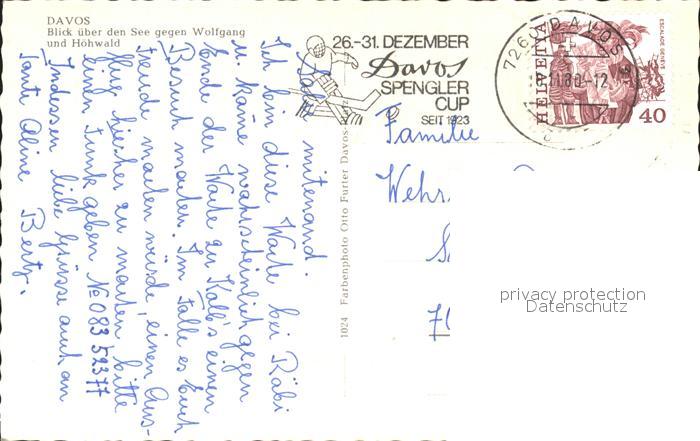 DAVOS
Blick über den See gegen Wolfgang
und Höhwald
26.-31. DEZEMBER
Davos
SPENGLER
CUP
SEIT 1923
7260 DAVOS
11.80-12
HELVETIA
ESCALADE GENÈVE
40
1024 Farbenphoto Otto Furter Davos-
Familie
Wehr
privacy protection
Datenschutz
mitenand.
Ich bin diese Woche bei Räbi
u. käme wahrscheinlich gegen
Ende der Woche zu Kolb's einen
Besuch machen. Im Falle es Euch
Freude machen würde, einen Aus-
flug hierher zu machen bitte
einen Funk geben No 083 52377
Indessen liebe Grüsse auch an
Tante Aline